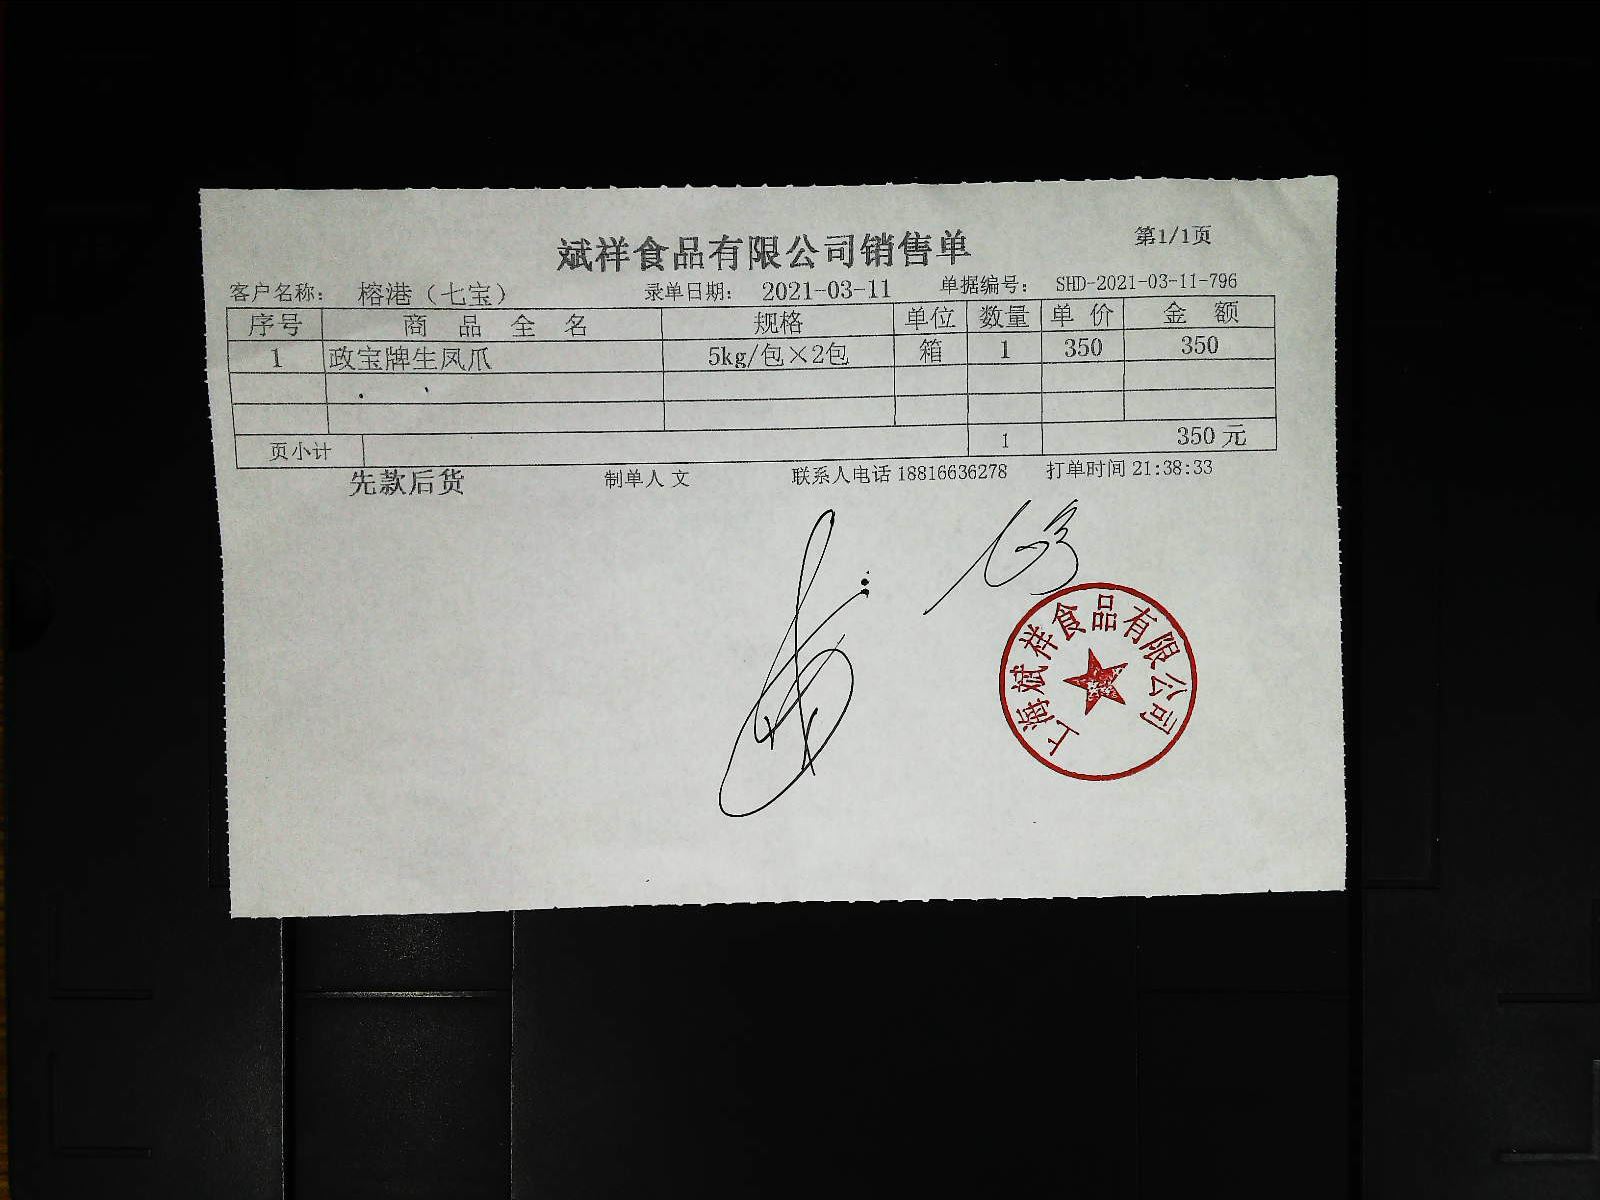 斌祥食品有限公司销售单
第1/1页
客户名称： 榕港（七宝） 录单日期： 2021-03-11 单据编号： SHD-2021-03-11-796
序号 商品全名 规格 单位 数量 单价 金额
1 政宝牌生凤爪 5kg/包×2包 箱 1 350 350
页小计 1 350元
先款后货 制单人 文 联系人电话 18816636278 打单时间 21:38:33
上海斌祥食品有限公司